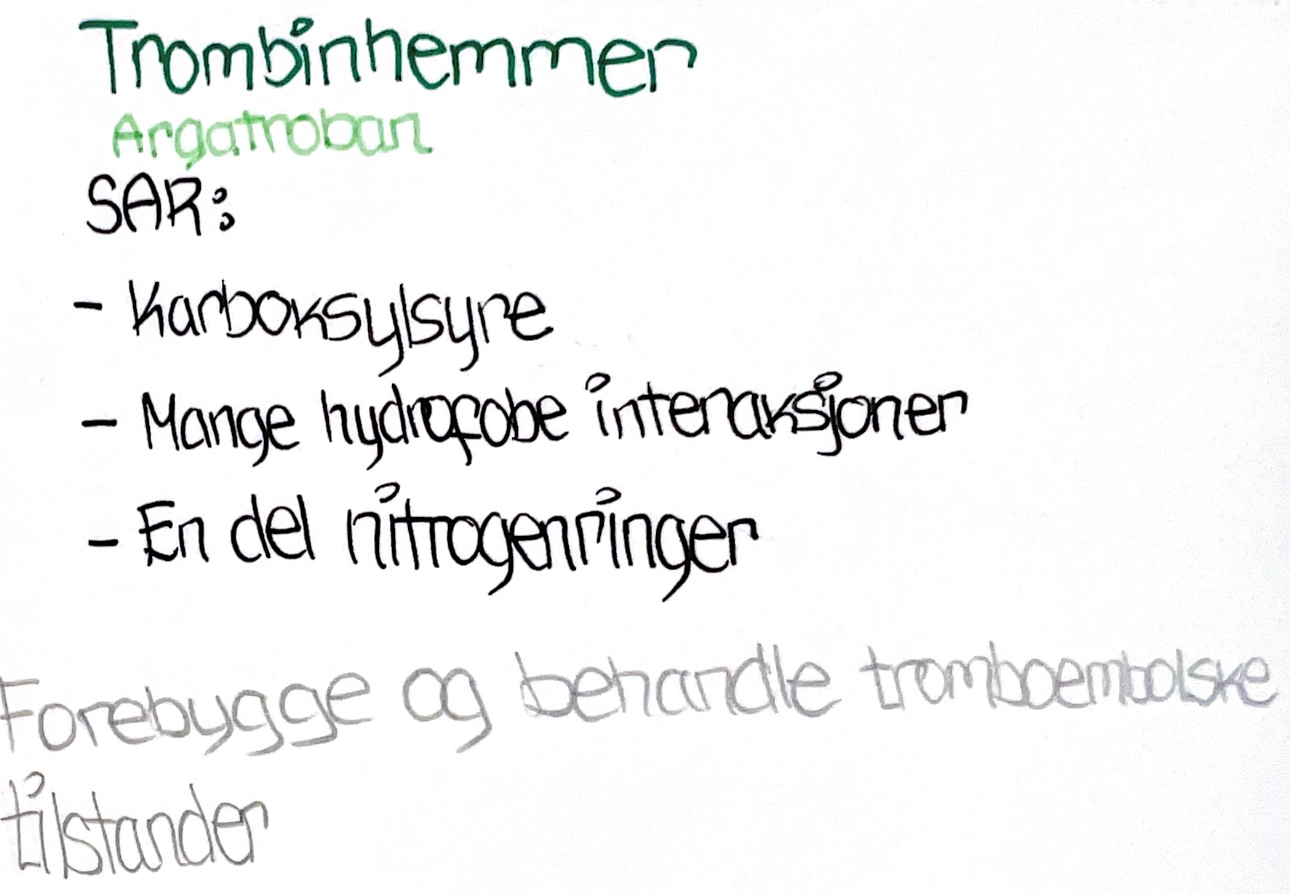 Trombinhemmer
Argatroban
SAR:
- Karboksylsyre
- Mange hydrofobe interaksjoner
- En del nitrogenringer
Forebygge og behandle tromboembolske
tilstander